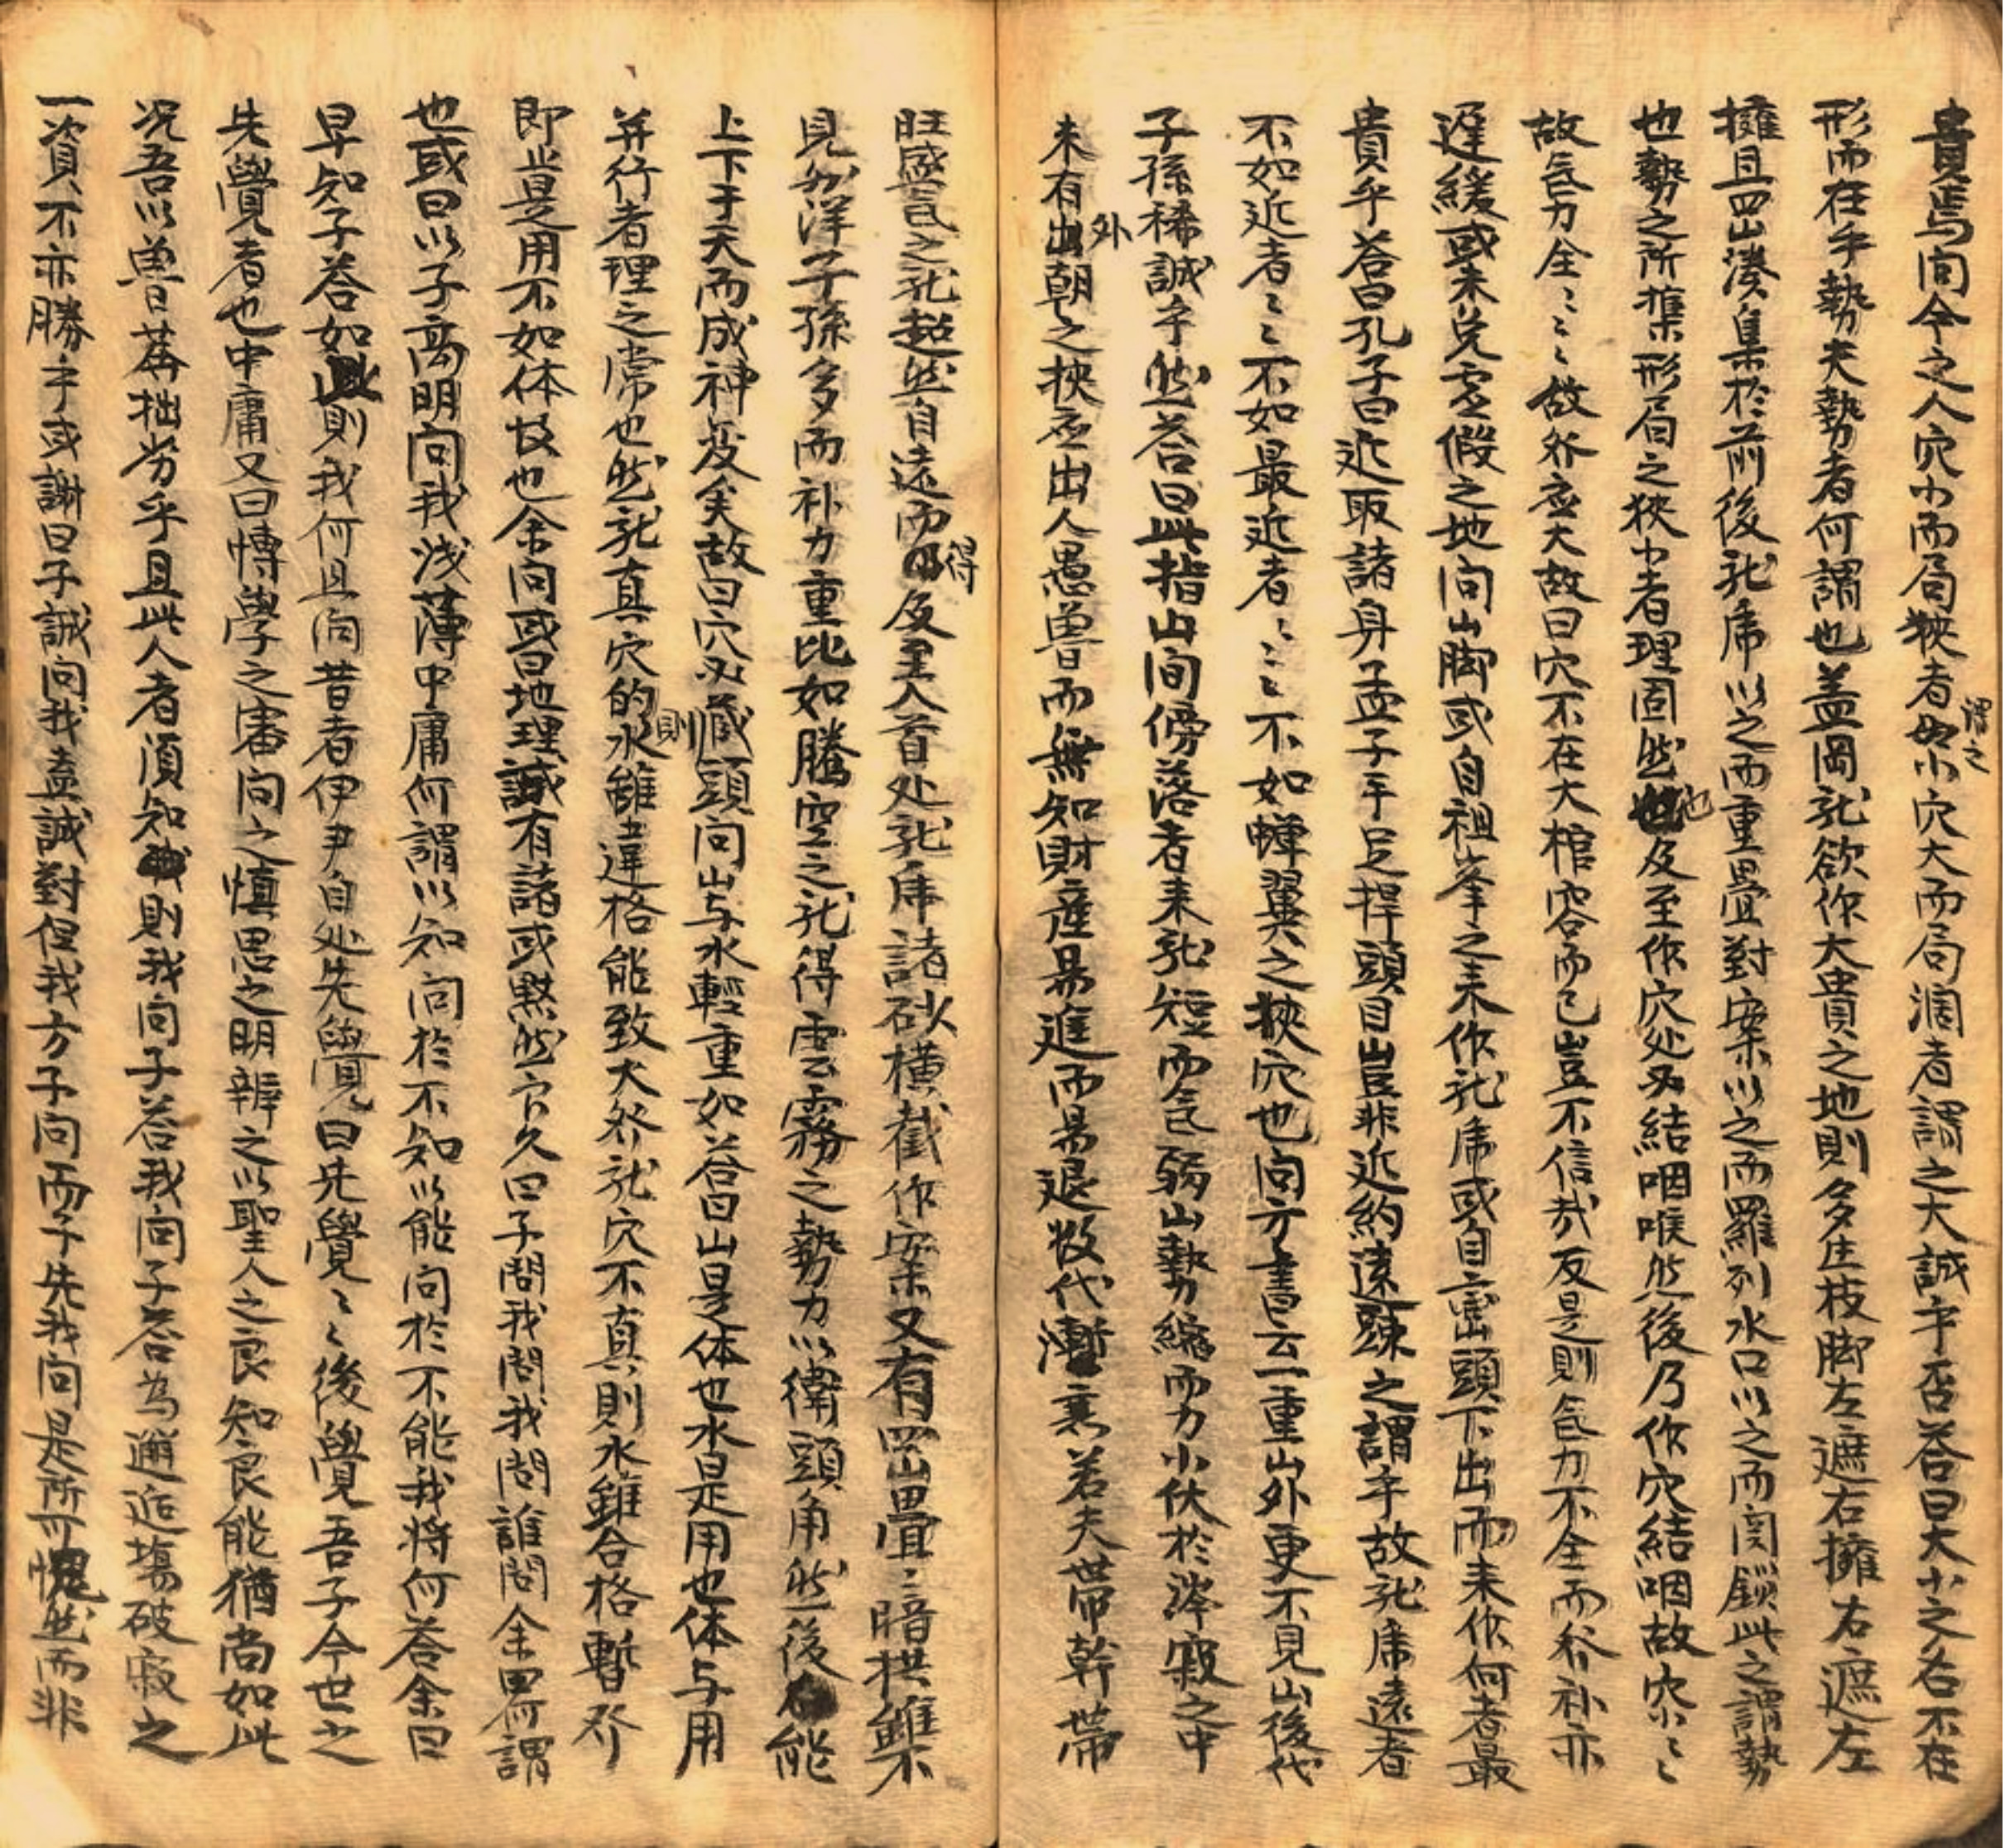 貴焉向今之人穴小而局狹者謂之小穴大而局濶者謂之大誠乎否答曰大小之名不在
形而在乎勢夫勢者何謂也盖岡龍欲作大貴之地則多庄枝脚左遮右擁右遮左
擁且四山湊集於前後龍席以之而重疊對案以之而羅列水口以之而関鎖此之謂勢
也勢之所集形局之狹窄者理固然也及至作穴処必結咽喉然後乃作穴結咽故穴小〻
故氣力全〻〻故發應大故曰穴不在大棺容而已豈不信哉反是則氣力不全而發福亦
遲緩或未免虛假之地向山脚或自祖峯之来作龍席或自巒頭下出而来作何者最
貴乎答曰孔子曰近取諸身孟子手足捍頭目豈非近約遠踈之謂乎故龍席遠者
不如近者〻〻不如最近者〻〻〻不如蟬翼之狹穴也向方書云一重山外更不見山後代
子孫稀誠乎然答曰此指山間傍落者来龍短而氣弱山勢縮而力小伏於濘寂之中
未有外朝之狹應出人愚魯而無知財產易進而易退數代漸衰若夫帶幹帶
旺盛氣之龍超然自遠而得及至入首处龍席諸砂橫截作案又有四山疊〻暗拱雖不
見外洋子孫多而補力重比如騰空之龍得雲霧之勢力以衛頭角然後能
上下于天而成神变矣故曰穴必藏頭向山与水輕重如答曰山是体也水是用也体与用
并行者理之常也然龍真穴的則水雖違格能致大發龍穴不真則水雖合格暫發
即止是用不如体故也余向或曰地理誠有諸或黙然良久曰子問我問我問誰問余曰何謂
也或曰以子高明向我浅薄中庸何謂以知向於不知以能向於不能我将何答余曰
早知子答如此則我何且向昔者伊尹自处先覺曰先覺〻〻後覺吾子今世之
先覺者也中庸又曰博學之審向之慎思之明辨之以聖人之良知良能猶尚如此
况吾以魯莽拙劣乎且此人者須知則我向子答我向子答為邂逅塲破寂之
一資不亦勝乎或謝曰子誠向我盍誠對但我方子向而子先我向是所可愧然而非